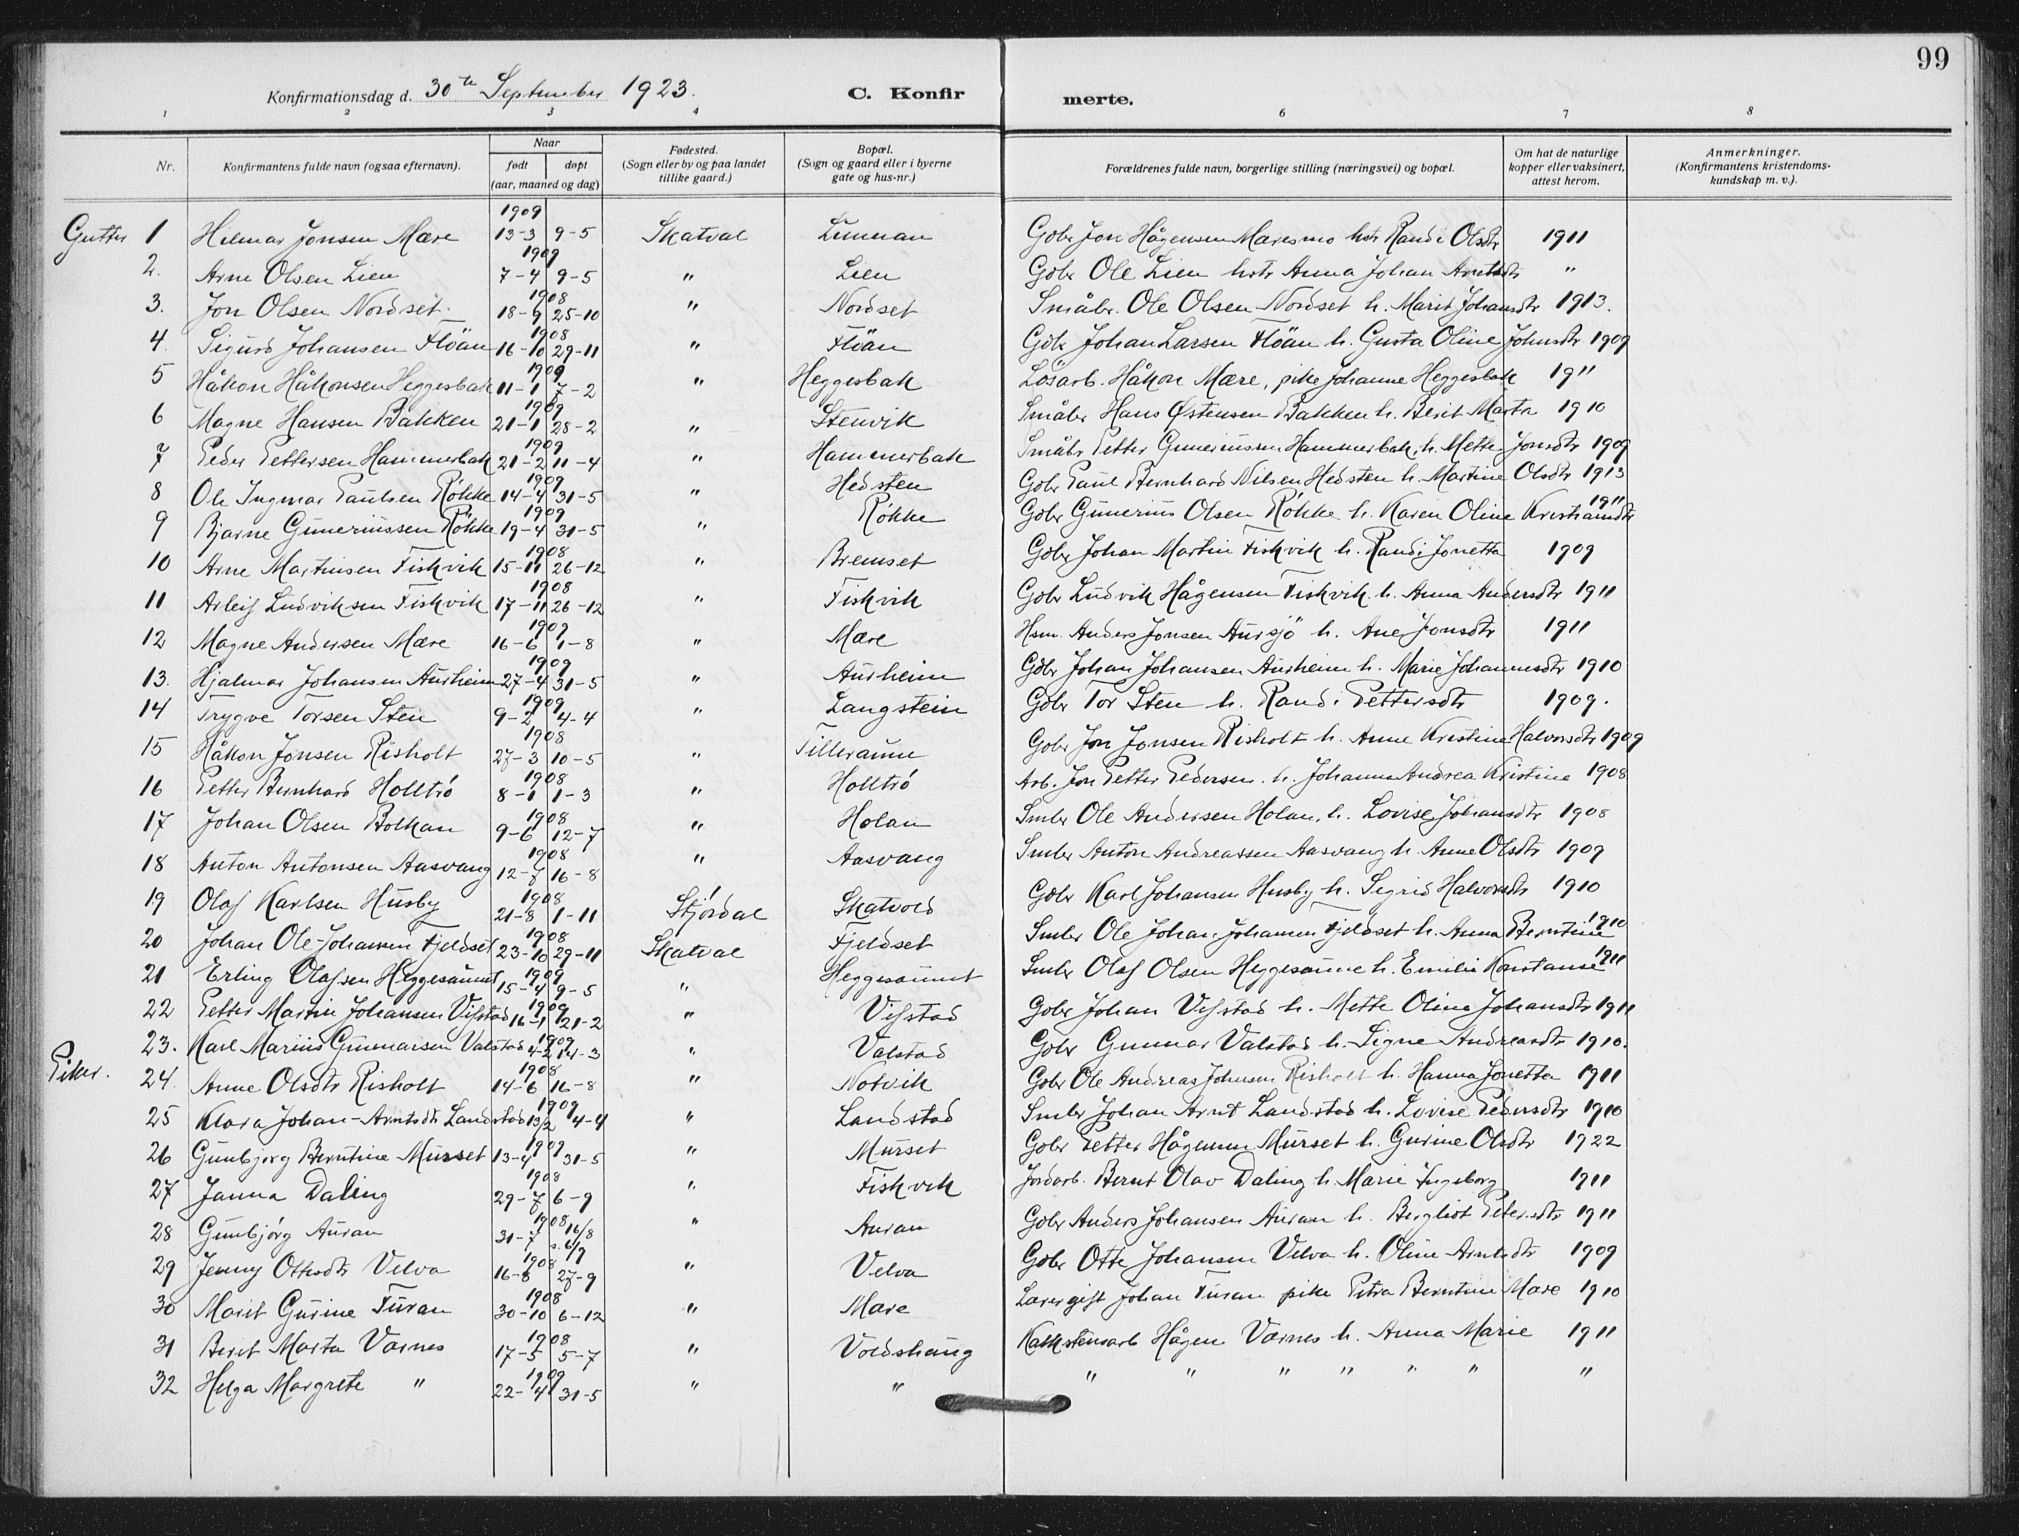 99
Konfirmationsdag d. 30te September 1923. C. Konfirmerte.
1 2 3 4 6 7 8
Nr. Konfirmantens fulde navn (ogsaa efternavn). Naar født døpt (aar, maaned og dag) Fødested. (Sogn eller by og paa landet tillike gaard.) Bopæl. (Sogn og gaard eller i byerne gate og hus-nr.) Forældrenes fulde navn, borgerlige stilling (næringsvei) og bopæl. Om hat de naturlige kopper eller vaksinert, attest herom. Anmerkninger. (Konfirmantens kristendoms-kundskap m. v.).
Gutter 1 Hilmar Jonsen Mære 1909 13-3 9-5 Skatval Gdbr Jon Hågensen Maresmo hstr Randi Olsdtr 1911
2. Arne Olsen Lien 1909 7-4 9-5 " Lien Gdbr Ole Lien hstr Anna Johan Arntsdtr "
3. Jon Olsen Nordset. 1908 18-9 25-10 " Nordset Småbr. Ole Olsen Nordset h. Marit Johansdtr 1913.
4. Sigurd Johansen Flöan 1908 16-10 29-11 " Flöan Gdbr Johan Larsen Flöan h. Gusta Oline Johnsdtr 1909
5 Håkon Håkonsen Heggesbak 1909 11-1 7-2 " Heggesbak Lösarb. Håkon Mære, pike Johanne Heggesbak 1911
6 Magne Hansen Bakken 1909 21-1 28-2 " Stenvik Småbr Hans Østensen Bakken h. Berit Marta 1910
7 Peder Pettersen Hammerbak 1909 21-2 11-4 " Hammerbak Småbr Petter Guneriussen Hammerbak h. Mette Jonsdtr 1909
8 Ole Ingmar Paulsen Røkke 1909 14-4 31-5 " Hedsten Gdbr Paul Bernhard Nilsen Hedsten h. Martine Olsdtr 1913
9 Bjarne Gunerinssen Røkke 1909 19-4 31-5 " Røkke Gdbr Gunerius Olsen Røkke h. Karen Oline Kristiansdtr 1911
10 Arne Martinsen Fiskvik 1908 15-11 26-12 " Bremset Gdbr Johan Martin Fiskvik h. Randi Jonetta 1909
11 Arleif Ludviksen Fiskvik 1908 17-11 26-12 " Fiskvik Gdbr Ludvik Hågensen Fiskvik h. Anna Andersdtr 1911
12 Magne Andersen Mære 1909 16-6 1-8 " Mære Hsm. Anders Jonsen Aursjö h. Ane Jonsdtr 1911
13. Hjalmar Johansen Aurheim 1909 27-4 31-5 " Aurheim Gdbr Johan Johansen Aurheim h. Marie Johannesdtr 1910
14 Trygve Torsen Sten 1909 9-2 4-4 " Langstein Gdbr Tor Sten h. Randi Pettersdtr 1909.
15 Håkon Jonsen Risholt 1908 27-3 10-5 " Tilleraune Gdbr Jon Jonsen Risholt h. Anne Kristine Halvorsdtr 1909
16 Petter Bernhard Holltrö 1908 8-1 1-3 " Holltrö Arb. Jon Petter Pedersen h. Johanna Andrea Kristine 1908
17 Johan Olsen Bolkan 1908 9-6 12-7 " Holan Smbr Ole Andersen Holan, h. Lovise Johansdtr 1908
18 Anton Antonsen Aasvang 1908 12-7 16-8 " Aasvang Smbr Anton Andreassen Aasvang h. Anne Olsdtr 1909
19 Olaf Karlsen Husby 1908 21-8 1-11 Stjördal Skatvold Gdbr Karl Johansen Husby h. Sigrid Halvorsdtr 1910
20 Johan Ole-Johansen Fjeldset 1908 23-10 29-11 Skatval Fjeldset Smbr Ole Johan Johansen Fjeldset h. Anna Berntine 1910
21 Erling Olafsen Heggesaunet 1909 15-4 9-5 " Heggesaunet Smbr Olaf Olsen Heggesaune h. Emilie Konstanse 1911
22 Petter Martin Johansen Vifstad 1909 16-1 21-2 " Vifstad Gdbr Johan Vifstad h. Mette Oline Johansdtr 1911
23. Karl Marius Gunnarsen Valstad 1909 4-2 14-3 " Valstad Gdbr Gunnar Valstad h. Signe Andreasdtr 1910.
Piker. 24. Anne Olsdtr Risholt 1908 14-6 16-8 " Notvik Gdbr Ole Andreas Johnsen Risholt h. Hanna Jonetta 1911
25 Klara Johan-Arntsdtr Landstad 1909 13/2 4-4 " Landstad Smbr Johan Arnt Landstad h. Lovise Pedersdtr 1910
26 Gunbjørg Berntine Murset 1909 13-4 31-5 " Murset Gdbr Petter Hågensen Murset h. Gurine Olsdtr 1922
27 Janna Daling 1908 29-7 6-9 " Fiskvik Jordarb. Bernt Olav Daling h. Marie Ingeborg 1911
28 Gunbjörg Auran 1908 31-7 16/8 s. 6/9 " Auran Gdbr Anders Johansen Auran h. Bergliot Petersdtr 1911
29 Jenny Ottesdtr Velva 1908 16-8 27-9 " Velva Gdbr Otte Johansen Velva h. Oline Arntsdtr 1909
30 Marit Gurine Furan 1908 30-10 6-12 " Mære Johan Furan pike Petra Berntine Mære 1910
31 Berit Marta Værnes 1908 17-5 5-7 " Voldshaug Kalkstensarb Hågen Værnes h. Anna Marie 1911
32 Helga Margrete " 1909 22-4 31-5 " " " " " " " " "